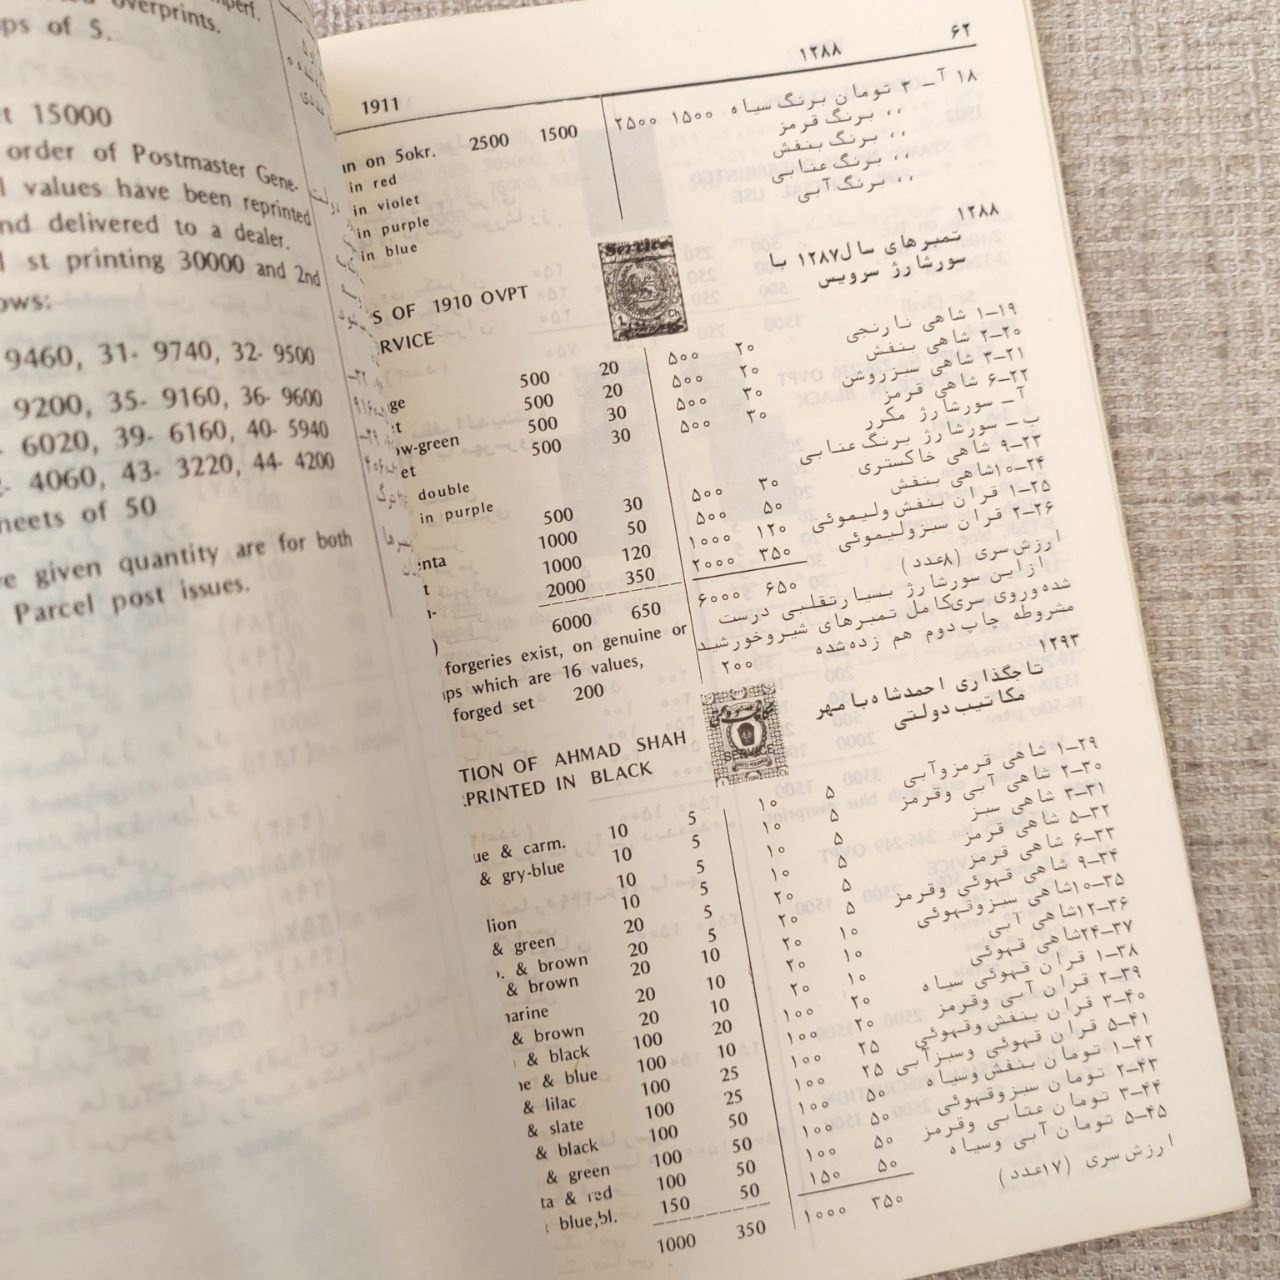 overprints.
ps of 5.
t 15000
order of Postmaster Gene-
l values have been reprinted
nd delivered to a dealer.
l st printing 30000 and 2nd
ows:
9460, 31- 9740, 32- 9500
9200, 35- 9160, 36- 9600
6020, 39- 6160, 40- 5940
4060, 43- 3220, 44- 4200
heets of 50
e given quantity are for both
Parcel post issues.
1911
an on 50kr. 2500 1500
in red
in violet
in purple
in blue
S OF 1910 OVPT
RVICE
500 20
ge 500 20
t 500 30
ow-green 500 30
et
double
in purple
500 30
enta 1000 50
t 1000 120
n- 2000 350
) 6000 650
forgeries exist, on genuine or
ps which are 16 values,
forged set 200
TION OF AHMAD SHAH
RPRINTED IN BLACK
ue & carm. 10 5
& gry-blue 10 5
10 5
lion 10 5
& green 20 5
. & brown 20 5
& brown 20 10
arine 20 10
& brown 20 10
& black 100 20
e & blue 100 10
& lilac 100 25
& slate 100 25
& black 100 50
& green 100 50
ta & red 100 50
blue,bl. 150 50
1000 350
۱۲۸۸ ۶۲
۱۸ آ– ۳ تومان برنگ سیاه ۱۵۰۰ ۲۵۰۰
،، برنگ قرمز
،، برنگ بنفش
،، برنگ عنابی
،، برنگ آبی
۱۲۸۸
تمبرهای سال۱۲۸۷ با
سورشارژ سرویس
Service
۱۹–۱ شاهی نارنجی ۲۰ ۵۰۰
۲۰–۲ شاهی بنفش ۲۰ ۵۰۰
۲۱–۳ شاهی سبزروشن ۳۰ ۵۰۰
۲۲–۶ شاهی قرمز ۳۰ ۵۰۰
آ– سورشارژ مکرر
ب– سورشارژ برنگ عنابی
۲۳–۹ شاهی خاکستری ۳۰ ۵۰۰
۲۴–۱۰شاهی بنفش ۵۰ ۵۰۰
۲۵–۱ قران بنفش ولیموئی ۱۲۰ ۱۰۰۰
۲۶–۲ قران سبزلیموئی ۳۵۰ ۲۰۰۰
ارزش سری (۸عدد) ۶۵۰ ۶۰۰۰
ازاین سورشارژ بسیارتقلبی درست
شده وروی سری کامل تمبرهای شیروخورشید
مشروطه چاپ دوم هم زده شده ۲۰۰
۱۲۹۳
تاجگذاری احمدشاه با مهر
مکاتیب دولتی
SERVICE
۲۹–۱ شاهی قرمزوآبی ۵ ۱۰
۳۰–۲ شاهی آبی وقرمز ۵ ۱۰
۳۱–۳ شاهی سبز ۵ ۱۰
۳۲–۵ شاهی قرمز ۵ ۱۰
۳۳–۶ شاهی قرمز ۵ ۲۰
۳۴–۹ شاهی قهوئی وقرمز ۵ ۲۰
۳۵–۱۰شاهی سبزوقهوئی ۱۰ ۲۰
۳۶–۱۲شاهی آبی ۱۰ ۲۰
۳۷–۲۴شاهی قهوئی ۱۰ ۲۰
۳۸–۱ قران قهوئی سیاه ۲۰ ۱۰۰
۳۹–۲ قران آبی وقرمز ۲۰ ۱۰۰
۴۰–۳ قران بنفش وقهوئی ۲۵ ۱۰۰
۴۱–۵ قران قهوئی وسبزآبی ۲۵ ۱۰۰
۴۲–۱ تومان بنفش وسیاه ۵۰ ۱۰۰
۴۳–۲ تومان سبزوقهوئی ۵۰ ۱۰۰
۴۴–۳ تومان عنابی وقرمز ۵۰ ۱۰۰
۴۵–۵ تومان آبی وسیاه ۵۰ ۱۵۰
ارزش سری (۱۷عدد) ۳۵۰ ۱۰۰۰